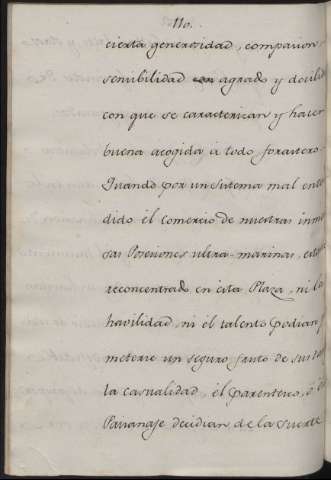 110.
cierta generosidad, compasion
sensibilidad agrado y docili
con que se caracterizan y hacen
buena acogida à todo forastero.
Quando por un sistema mal enten
dido el comercio de nuestras inmen
sas Posesiones ultra-marinas, estava
reconcentrado en esta Plaza, ni la
havilidad, ni el talento podian
meterse un seguro fruto de sus
la casualidad, el parentesco, ò el
Paisanaje decidian de la suerte